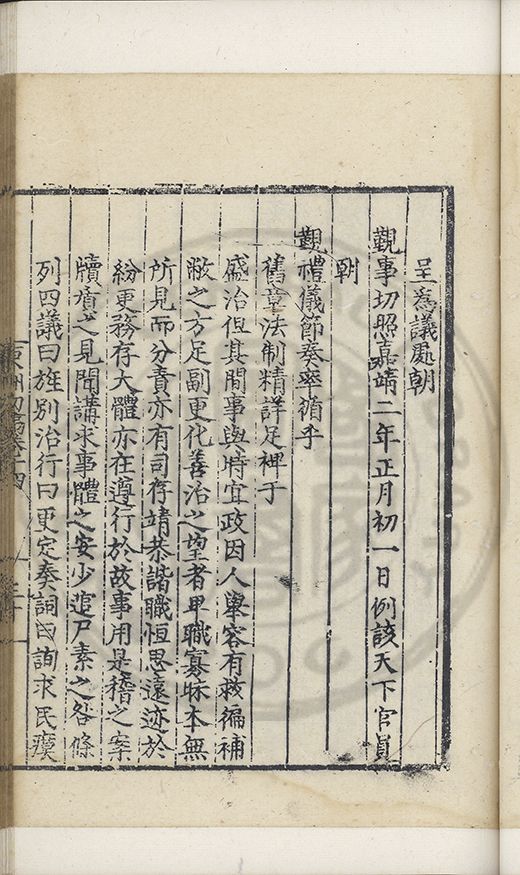 呈為議處朝
覲事切照嘉靖二年正月初一日例該天下官員
朝
覲禮儀節奏率循乎
舊章法制精詳足裨于
盛治但其間事與時宜政因人舉容有救徧補
敝之方足副更化善治之望者卑職寡昧本無
所見而分責亦有司存靖恭諧職恒思遠迹於
紛更務存大體亦在遵行於故事用是稽之案
牘質之見聞講求事體之安少逭尸素之咎條
列四議曰旌別治行曰更定奏詞曰詢求民瘼
東洲初稿卷十四